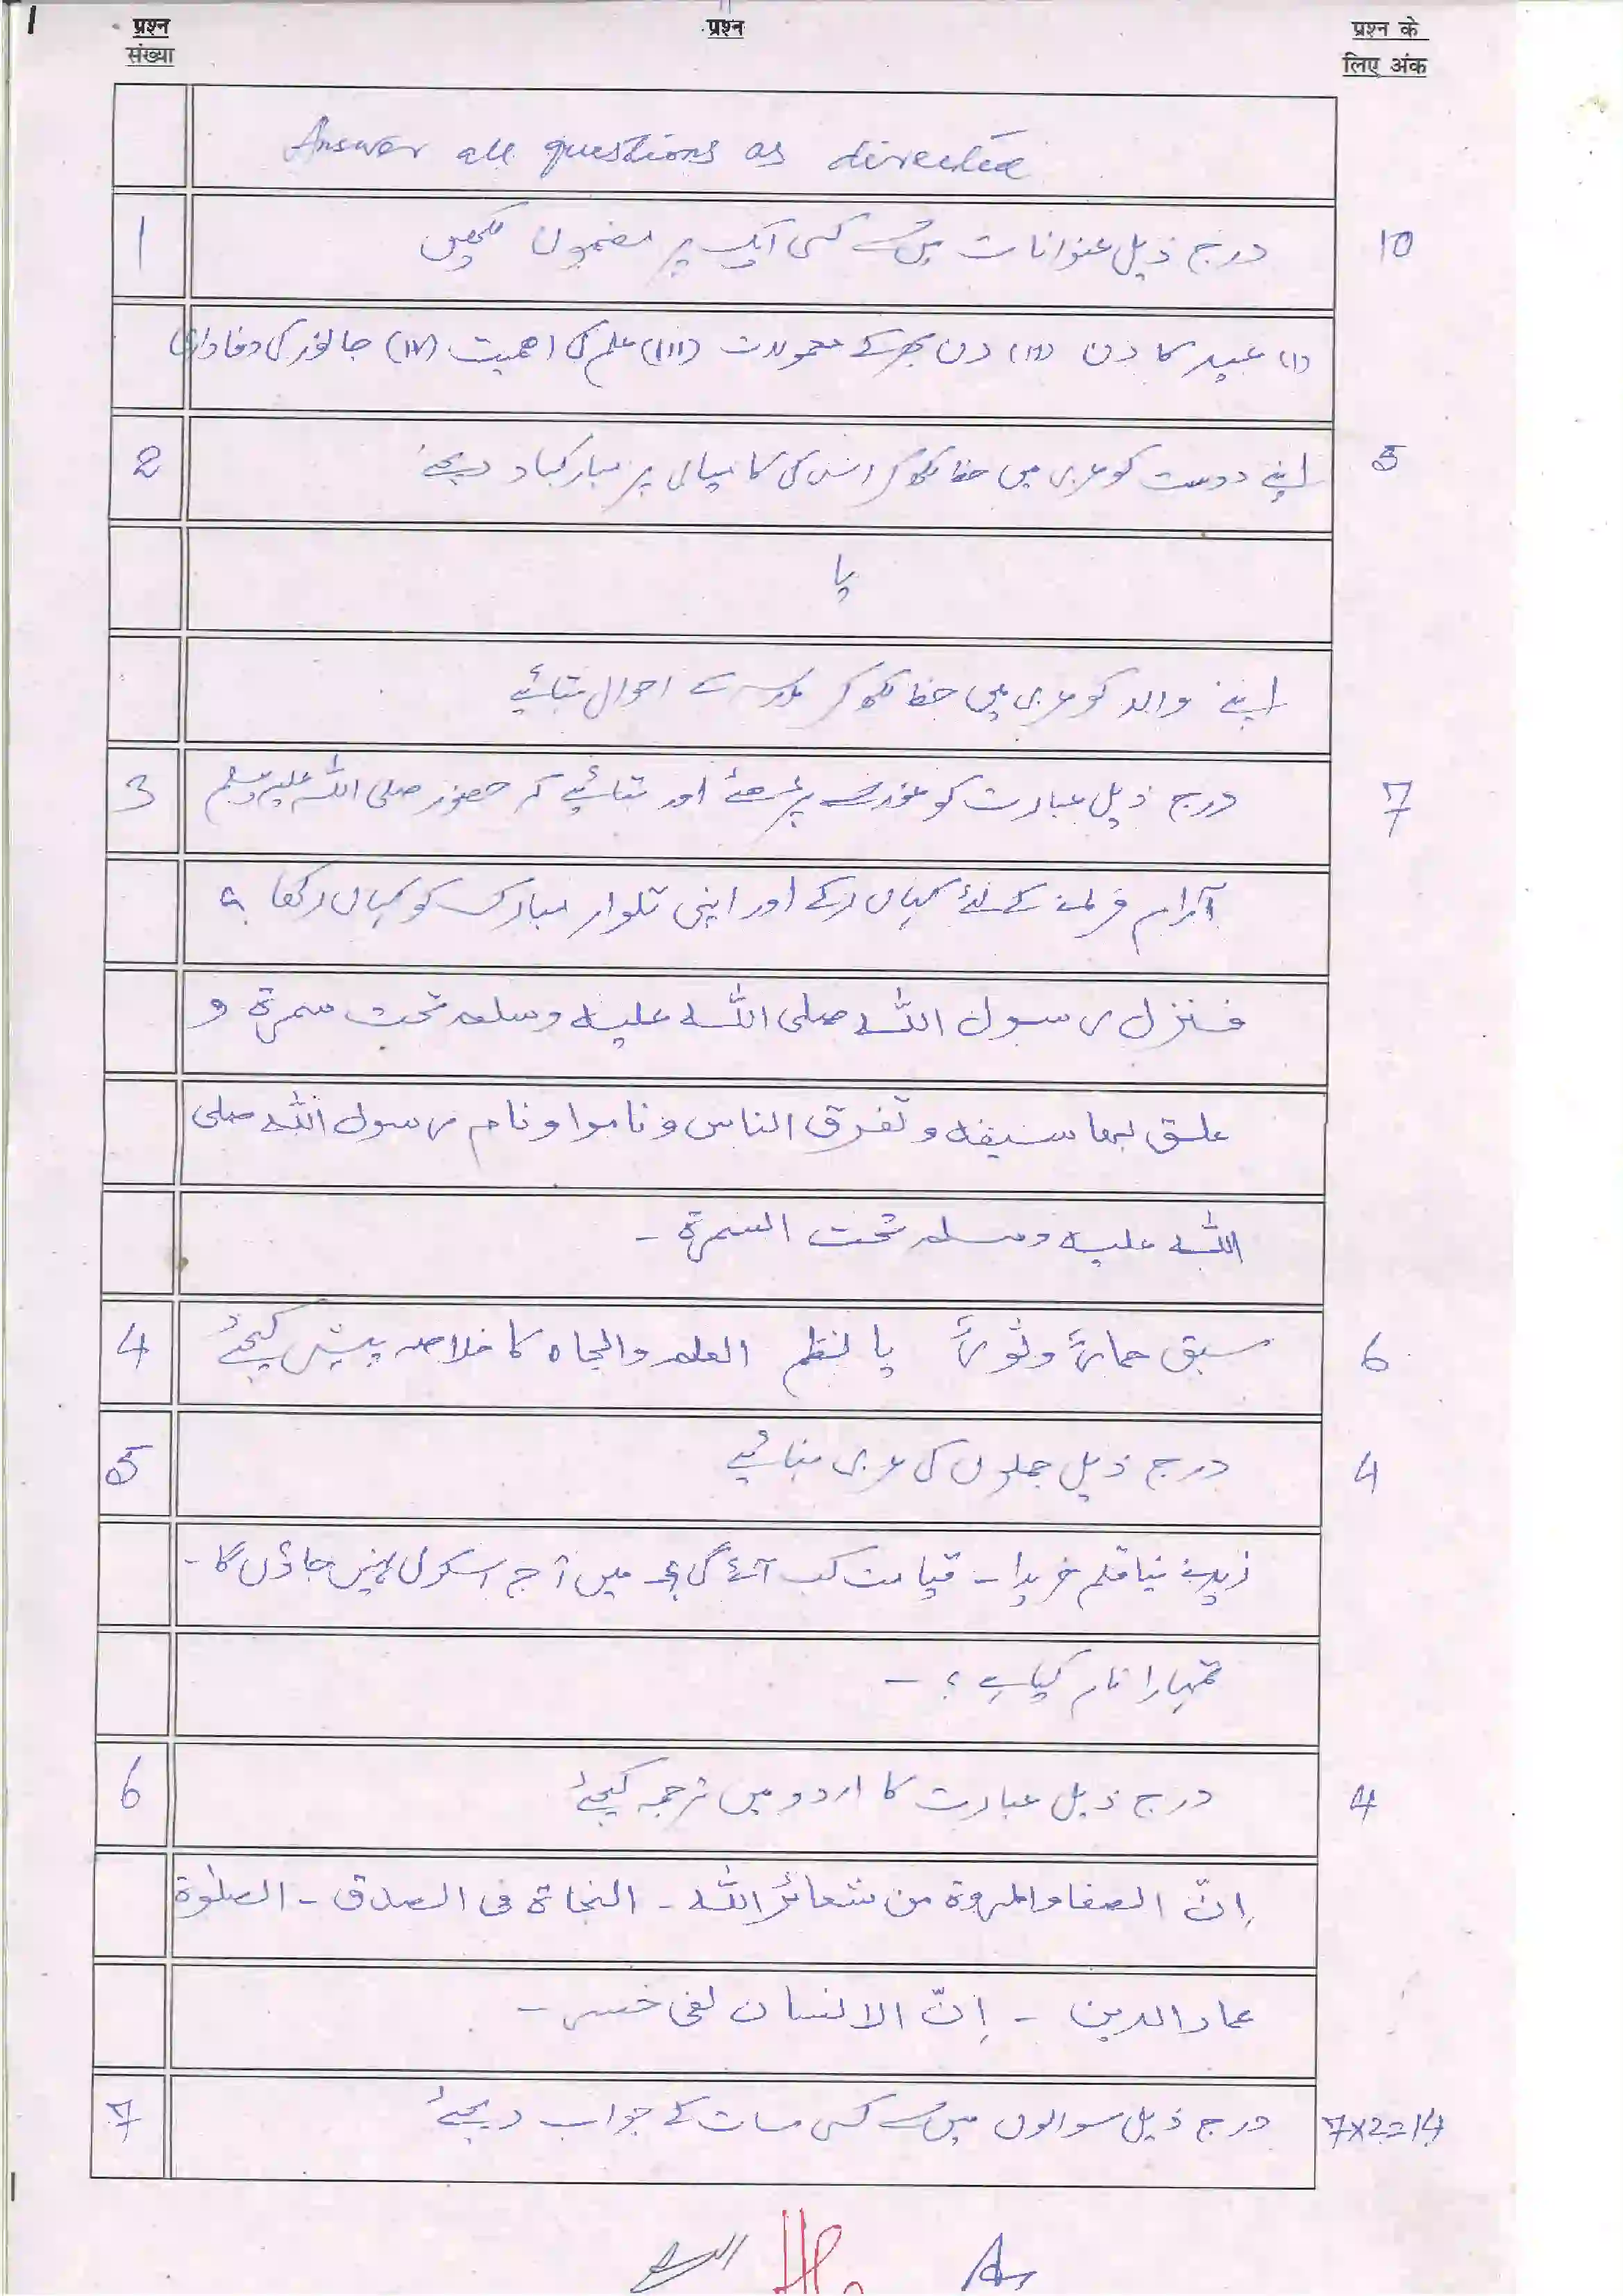 1
प्रश्न संख्या
प्रश्न
प्रश्न के लिए अंक
Answer all questions as directed
1 درج ذیل عنوانات میں سے کسی ایک پر مضمون لکھیں 10
(i) عید کا دن (ii) دن بھر کے معمولات (iii) علم کی اہمیت (iv) جانور کی وفاداری
2 اپنے دوست کو عربی میں خط لکھ کر اس کی کامیابی پر مبارکباد دیجئے 5
یا
اپنے والد کو عربی میں خط لکھ کر مدرسہ کے احوال بتائیے
3 درج ذیل عبارت کو غور سے پڑھئے اور بتائیے کہ حضور صلی اللہ علیہ وسلم 7
آرام فرمانے کے لئے کہاں رکے اور اپنی تلوار مبارک کو کہاں رکھا ؟
فنزل رسول اللہ صلی اللہ علیہ وسلم تحت سمرۃ و
علق بھا سیفہ و تفرق الناس و ناموا و نام رسول اللہ صلی
اللہ علیہ وسلم تحت السمرۃ -
4 سبق حماراً وثوراً یا نظم العلم والجاہ کا خلاصہ پیش کیجئے 6
5 درج ذیل جملوں کی عربی بنائیے 4
زید نے نیا قلم خریدا - قیامت کب آئے گی؟ میں آج اسکول نہیں جاؤں گا -
تمہارا نام کیا ہے ؟ -
6 درج ذیل عبارت کا اردو میں ترجمہ کیجئے 4
اِنّ الصفا والمروۃ من شعائر اللہ - النجاۃ فی الصدق - الصلوۃ
عماد الدین - اِنّ الانسان لفی خسر -
7 درج ذیل سوالوں میں سے کسی سات کے جواب دیجئے 7x2=14